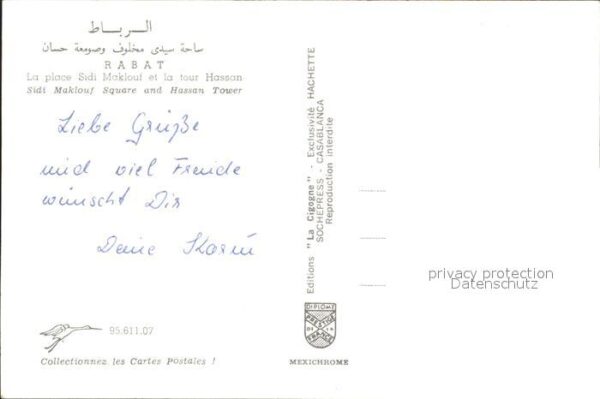 الـربـاط
ساحة سيدي مخلوف وصومعة حسان
RABAT
La place Sidi Maklouf et la tour Hassan
Sidi Maklouf Square and Hassan Tower
Liebe Grüße
und viel Freude
wünscht Dir
Deine Karin
95.611.07
Collectionnez les Cartes Postales !
Editions "La Cigogne" - Exclusivité HACHETTE
SOCHEPRESS - CASABLANCA
Reproduction interdite
DIPLOME
PRESTIGE
DE LA
FRANCE
MEXICHROME
privacy protection
Datenschutz